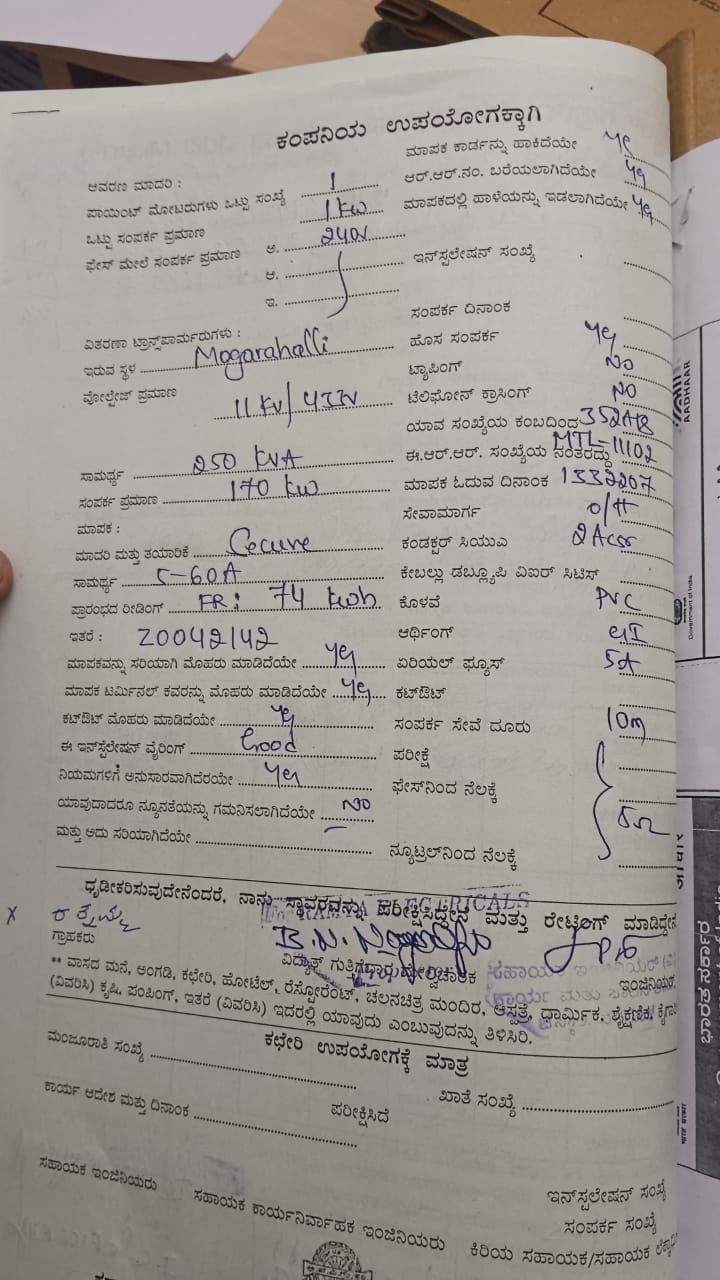 ಕಂಪನಿಯ ಉಪಯೋಗಕ್ಕಾಗಿ
ಮಾಪಕ ಕಾರ್ಡನ್ನು ಹಾಕಿದೆಯೇ
ಆವರಣ ಮಾದರಿ :
ಆರ್.ಆರ್.ನಂ. ಬರೆಯಲಾಗಿದೆಯೇ
ಪಾಯಿಂಟ್ ಮೋಟರುಗಳು ಒಟ್ಟು ಸಂಖ್ಯೆ 1
ಮಾಪಕದಲ್ಲಿ ಹಾಳೆಯನ್ನು ಇಡಲಾಗಿದೆಯೇ
ಒಟ್ಟು ಸಂಪರ್ಕ ಪ್ರಮಾಣ 1 KW
ಫೇಸ್ ಮೇಲೆ ಸಂಪರ್ಕ ಪ್ರಮಾಣ ಅ. 240V
ಆ.
ಇನ್‌ಸ್ಪಲೇಷನ್ ಸಂಖ್ಯೆ
ಇ.
ಸಂಪರ್ಕ ದಿನಾಂಕ
ವಿತರಣಾ ಟ್ರಾನ್ಸ್‌ಪಾರ್ಮರುಗಳು :
ಹೊಸ ಸಂಪರ್ಕ yes
ಇರುವ ಸ್ಥಳ Mogarahalli
ಟ್ಯಾಪಿಂಗ್ NO
ವೋಲ್ಟೇಜ್ ಪ್ರಮಾಣ 11 KV/433V
ಟೆಲಿಫೋನ್ ಕ್ರಾಸಿಂಗ್ NO
ಯಾವ ಸಂಖ್ಯೆಯ ಕಂಬದಿಂದ
ಸಾಮರ್ಥ್ಯ 250 KVA
ಈ.ಆರ್.ಆರ್. ಸಂಖ್ಯೆಯ ನಂತರದ್ದು MTL-11102
ಸಂಪರ್ಕ ಪ್ರಮಾಣ 170 KW
ಮಾಪಕ ಓದುವ ದಿನಾಂಕ 1332207
ಮಾಪಕ :
ಸೇವಾಮಾರ್ಗ O/H
ಮಾದರಿ ಮತ್ತು ತಯಾರಿಕೆ Secure
ಕಂಡಕ್ಟರ್ ಸಿಯುವಿ
ಸಾಮರ್ಥ್ಯ 5-60A
ಕೇಬಲ್ಲು ಡಬ್ಲ್ಯೂಪಿ ವಿಐರ್ ಸಿಟಿಸ್
ಪ್ರಾರಂಭದ ರೀಡಿಂಗ್ FR: 74 kwh
ಕೊಳವೆ PVC
ಇತರೆ : 20042142
ಆರ್ಥಿಂಗ್ GI
ಮಾಪಕವನ್ನು ಸರಿಯಾಗಿ ಮೊಹರು ಮಾಡಿದೆಯೇ yes
ಏರಿಯಲ್ ಫ್ಯೂಸ್ 5A
ಮಾಪಕ ಟರ್ಮಿನಲ್ ಕವರನ್ನು ಮೊಹರು ಮಾಡಿದೆಯೇ yes
ಕಟ್‌ಔಟ್
ಕಟ್‌ಔಟ್ ಮೊಹರು ಮಾಡಿದೆಯೇ yes
ಸಂಪರ್ಕ ಸೇವೆ ದೂರು 10m
ಈ ಇನ್‌ಸ್ಟಲೇಷನ್ ವೈರಿಂಗ್ Good
ಪರೀಕ್ಷೆ
ನಿಯಮಗಳಿಗೆ ಅನುಸಾರವಾಗಿದೆರಯೇ yes
ಫೇಸ್‌ನಿಂದ ನೆಲಕ್ಕೆ
ಯಾವುದಾದರೂ ನ್ಯೂನತೆಯನ್ನು ಗಮನಿಸಲಾಗಿದೆಯೇ NO
5Ω
ಮತ್ತು ಅದು ಸರಿಯಾಗಿದೆಯೇ
ನ್ಯೂಟ್ರಲ್‌ನಿಂದ ನೆಲಕ್ಕೆ
ಧೃಡೀಕರಿಸುವುದೇನೆಂದರೆ, ನಾನು ಸ್ಥಾವರವನ್ನು ಪರೀಕ್ಷಿಸಿದ್ದೇನೆ ಮತ್ತು ರೇಟಿಂಗ್ ಮಾಡಿದ್ದೇನೆ
ELECTRICALS
X
ಗ್ರಾಹಕರು
ವಿದ್ಯುತ್ ಗುತ್ತಿಗೆಧಾರ ಮೇಲ್ವಿಚಾರಕ
ಇಂಜಿನಿಯಕ
** ವಾಸದ ಮನೆ, ಅಂಗಡಿ, ಕಛೇರಿ, ಹೋಟೆಲ್, ರೆಸ್ಟೋರೆಂಟ್, ಚಲನಚಿತ್ರ ಮಂದಿರ, ಆಸ್ಪತ್ರೆ, ಧಾರ್ಮಿಕ, ಶೈಕ್ಷಣಿಕ, ಕೈಗಾ
(ವಿವರಿಸಿ) ಕೃಷಿ, ಪಂಪಿಂಗ್, ಇತರೆ (ವಿವರಿಸಿ) ಇದರಲ್ಲಿ ಯಾವುದು ಎಂಬುವುದನ್ನು ತಿಳಿಸಿರಿ.
ಕಛೇರಿ ಉಪಯೋಗಕ್ಕೆ ಮಾತ್ರ
ಮಂಜೂರಾತಿ ಸಂಖ್ಯೆ
ಖಾತೆ ಸಂಖ್ಯೆ
ಕಾರ್ಯ ಆದೇಶ ಮತ್ತು ದಿನಾಂಕ
ಪರೀಕ್ಷಿಸಿದೆ
ಇನ್‌ಸ್ಪಲೇಷನ್ ಸಂಖ್ಯೆ
ಸಂಪರ್ಕ ಸಂಖ್ಯೆ
ಸಹಾಯಕ ಇಂಜಿನಿಯರು
ಸಹಾಯಕ ಕಾರ್ಯನಿರ್ವಾಹಕ ಇಂಜಿನಿಯರು
ಕಿರಿಯ ಸಹಾಯಕ/ಸಹಾಯಕ
AADHAAR
Government of India
ಭಾರತ ಸರ್ಕಾರ